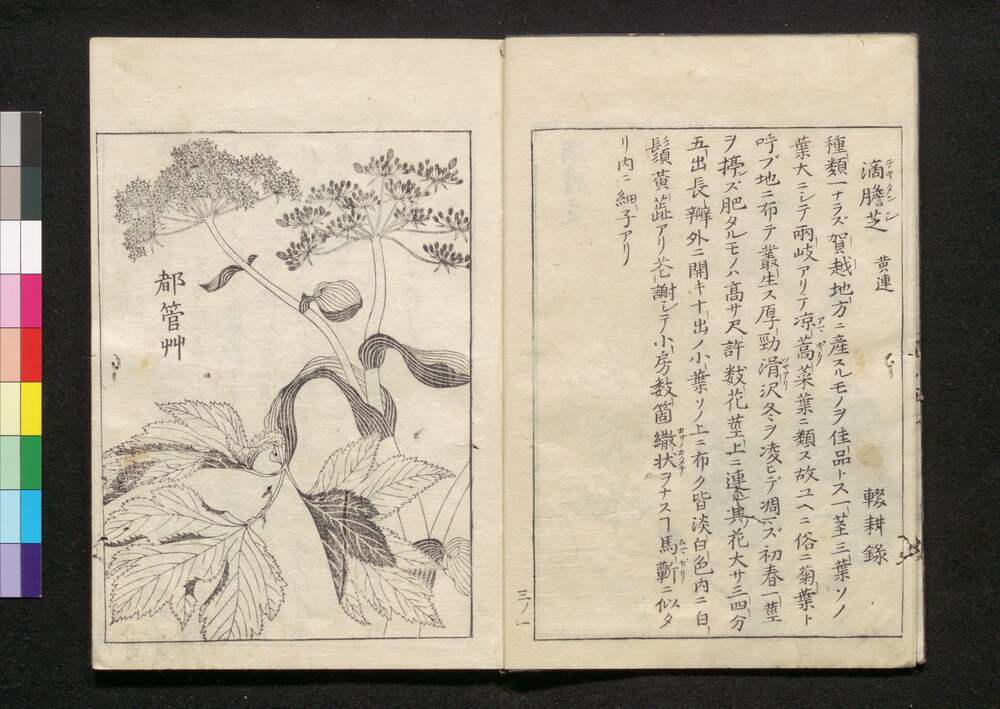 滴膽芝 黄連 輟耕録
種類一ナラズ賀越地方ニ産スルモノヲ佳品トス一莖三葉ソノ
葉大ニシテ兩岐アリテ凉蒿菜葉ニ類ス故ユヘニ俗ニ菊葉ト
呼ブ地ニ布テ叢生ス厚勁滑沢冬ヲ凌ヒデ凋ズ初春一莖
ヲ擡ズ肥タルモノハ高サ尺許数花莖上ニ連其花大サ三四分
五出長瓣外ニ開キ十出ノ小葉ソノ上ニ布ク皆淡白色内ニ白
鬚黄蘂アリ花謝シテ小房数箇繖状ヲナスヿ馬蘄ニ似タ
リ内ニ細子アリ
三ノ一
都管艸